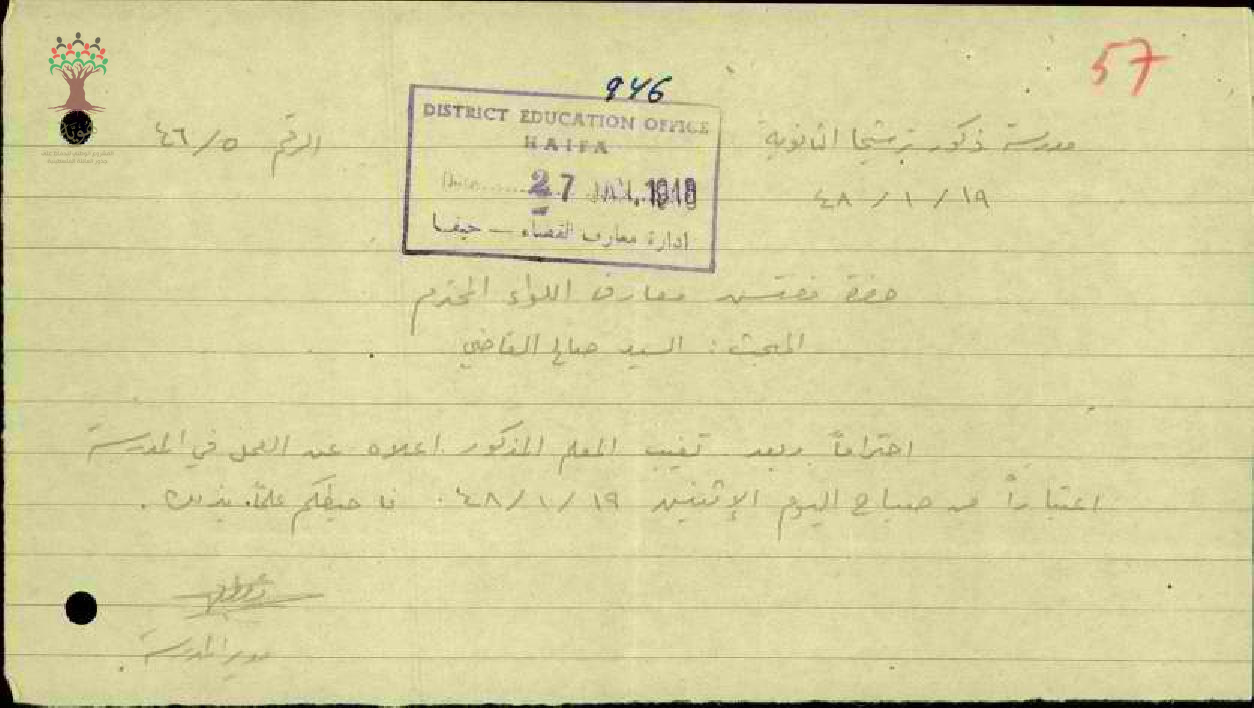 57
946
DISTRICT EDUCATION OFFICE
HAIFA
Date ...... 27 JAN. 1948
ادارة معارف القضاء — حيفا
مدرسة ذكور ترشيحا الثانوية
الرقم ٤٦/٥
٤٨ / ١ / ١٩
حضرة مفتش معارف اللواء المحترم
المبحث : السيد صالح القاضي
احتراماً وبعد تغيب المعلم المذكور اعلاه عن العمل في المدرسة
اعتباراً من صباح اليوم الإثنين ١٩ / ١ / ٤٨ . فاحيطكم علماً بذلك .
مدير المدرسة